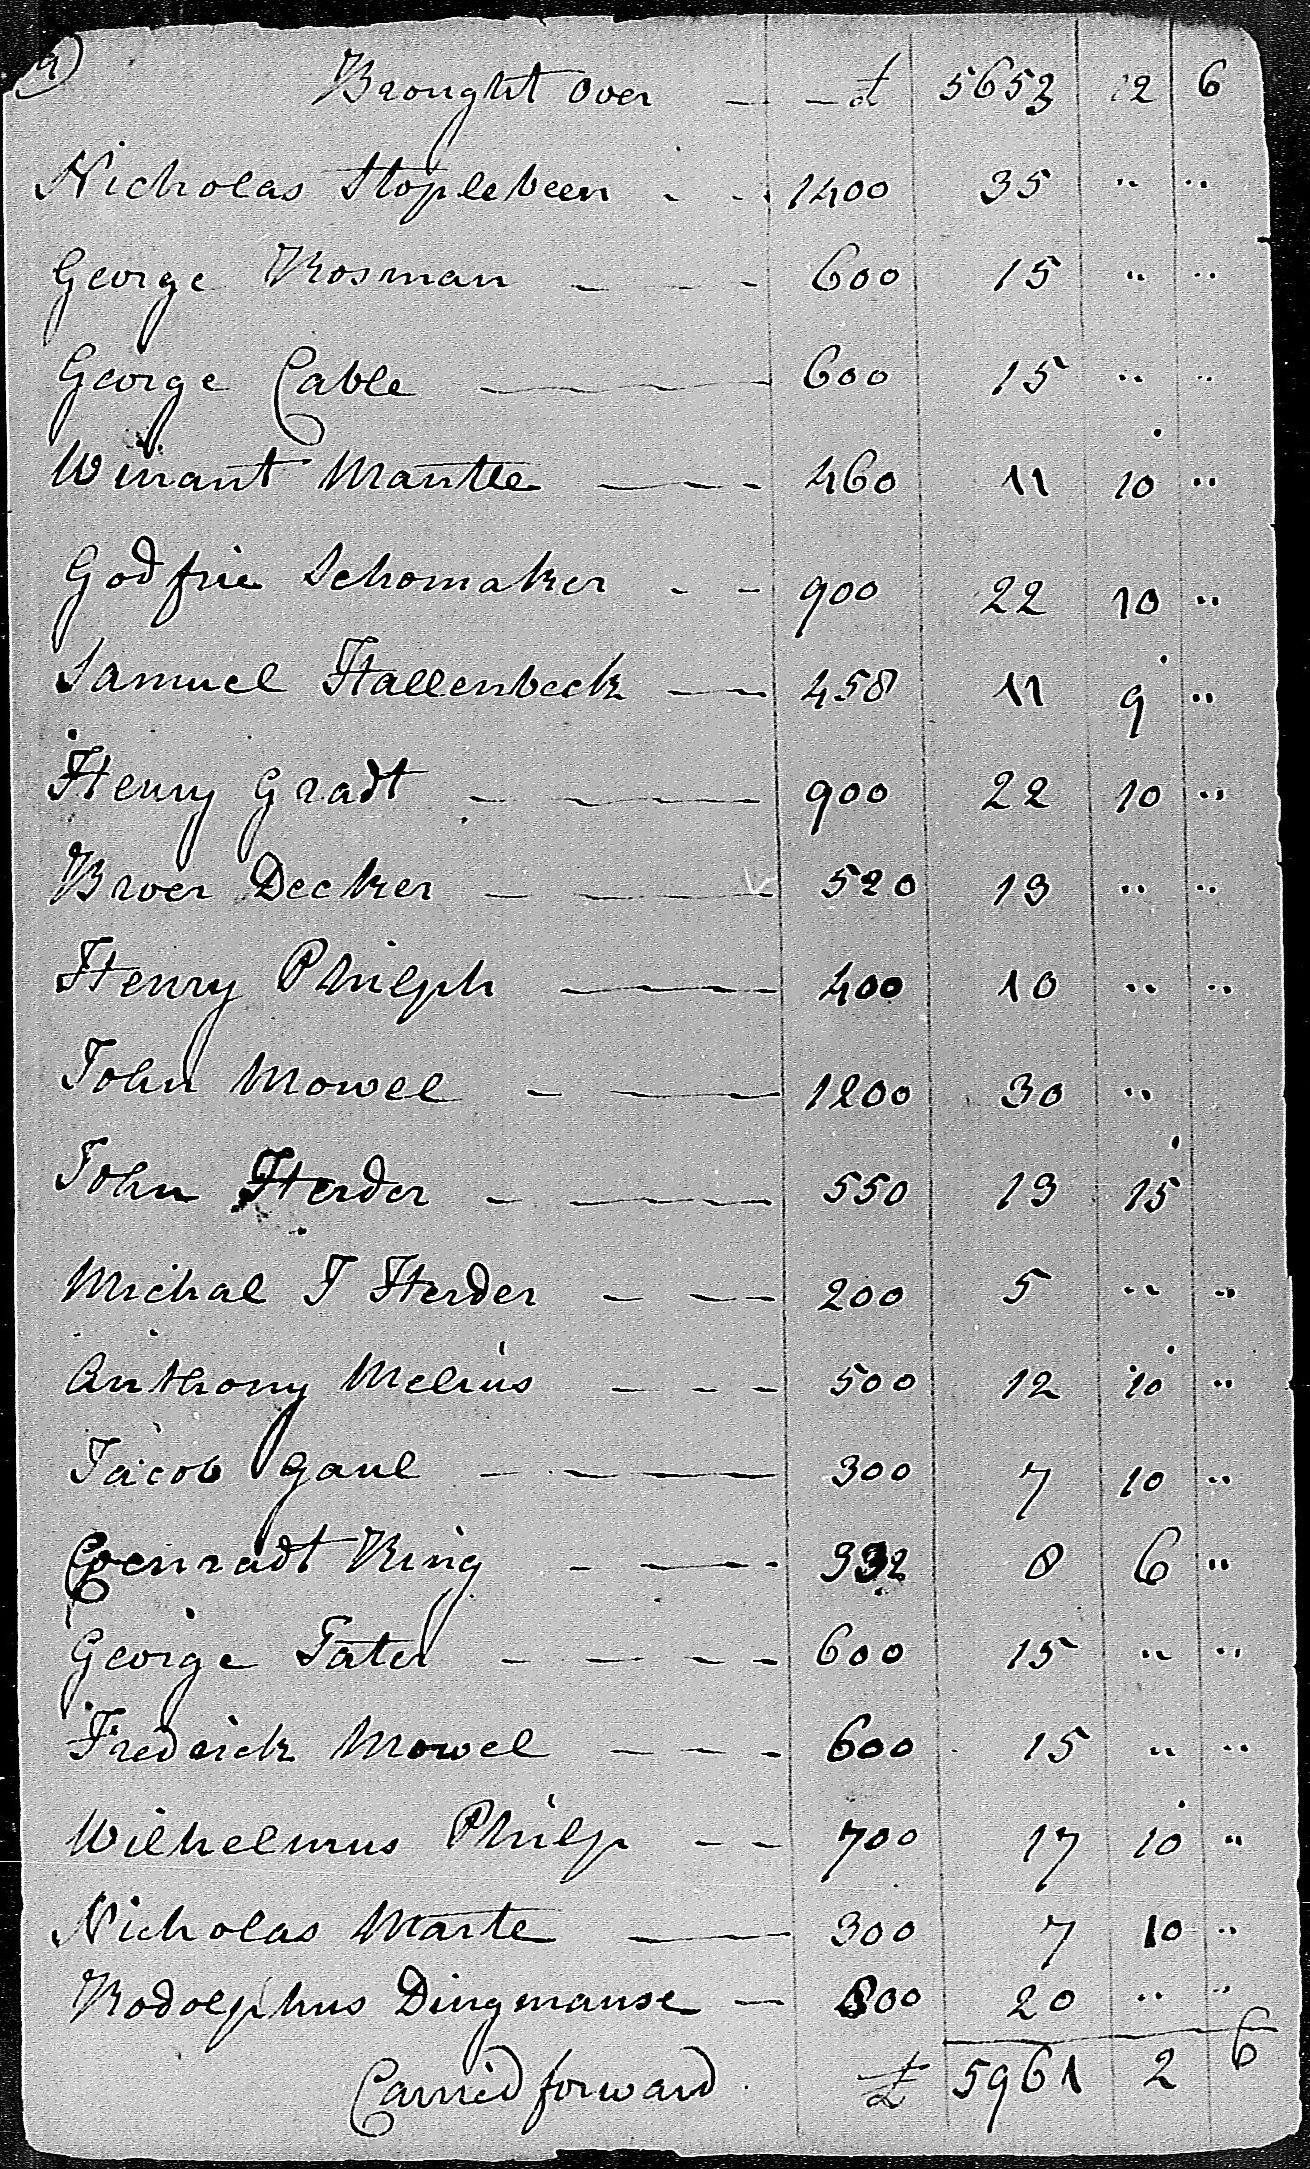 Brought over — — £ 5653 2 6
Nicholas Stoplebeen - - 1400 35 " "
George Rosman — — — 600 15 " "
George Cable — — — 600 15 " "
Winant Mantle — — - 460 11 10 "
Godfrie Schomaker - - 900 22 10 "
Samuel Hallenbeck — — 458 11 9 "
Henry Gradt - — — — 900 22 10 "
Broer Decker — — — — 520 13 " "
Henry Philiph — — — 400 10 " "
John Mowel — — — 1200 30 "
John Herder - — — — 550 13 15
Michal J Herder — — — 200 5 " "
Anthony Melius — - - 500 12 10 "
Jacob Gaul — — — — 300 7 10 "
Coenradt King — — — 332 8 6 "
George Tater - — — — 600 15 " "
Frederick Mowel — — - 600 15 " "
Wilhelmus Philip — — 700 17 10 "
Nicholas Marte — — 300 7 10 "
Rodolphus Dingmanse — 800 20 " "
Carried forward £ 5961 2 6